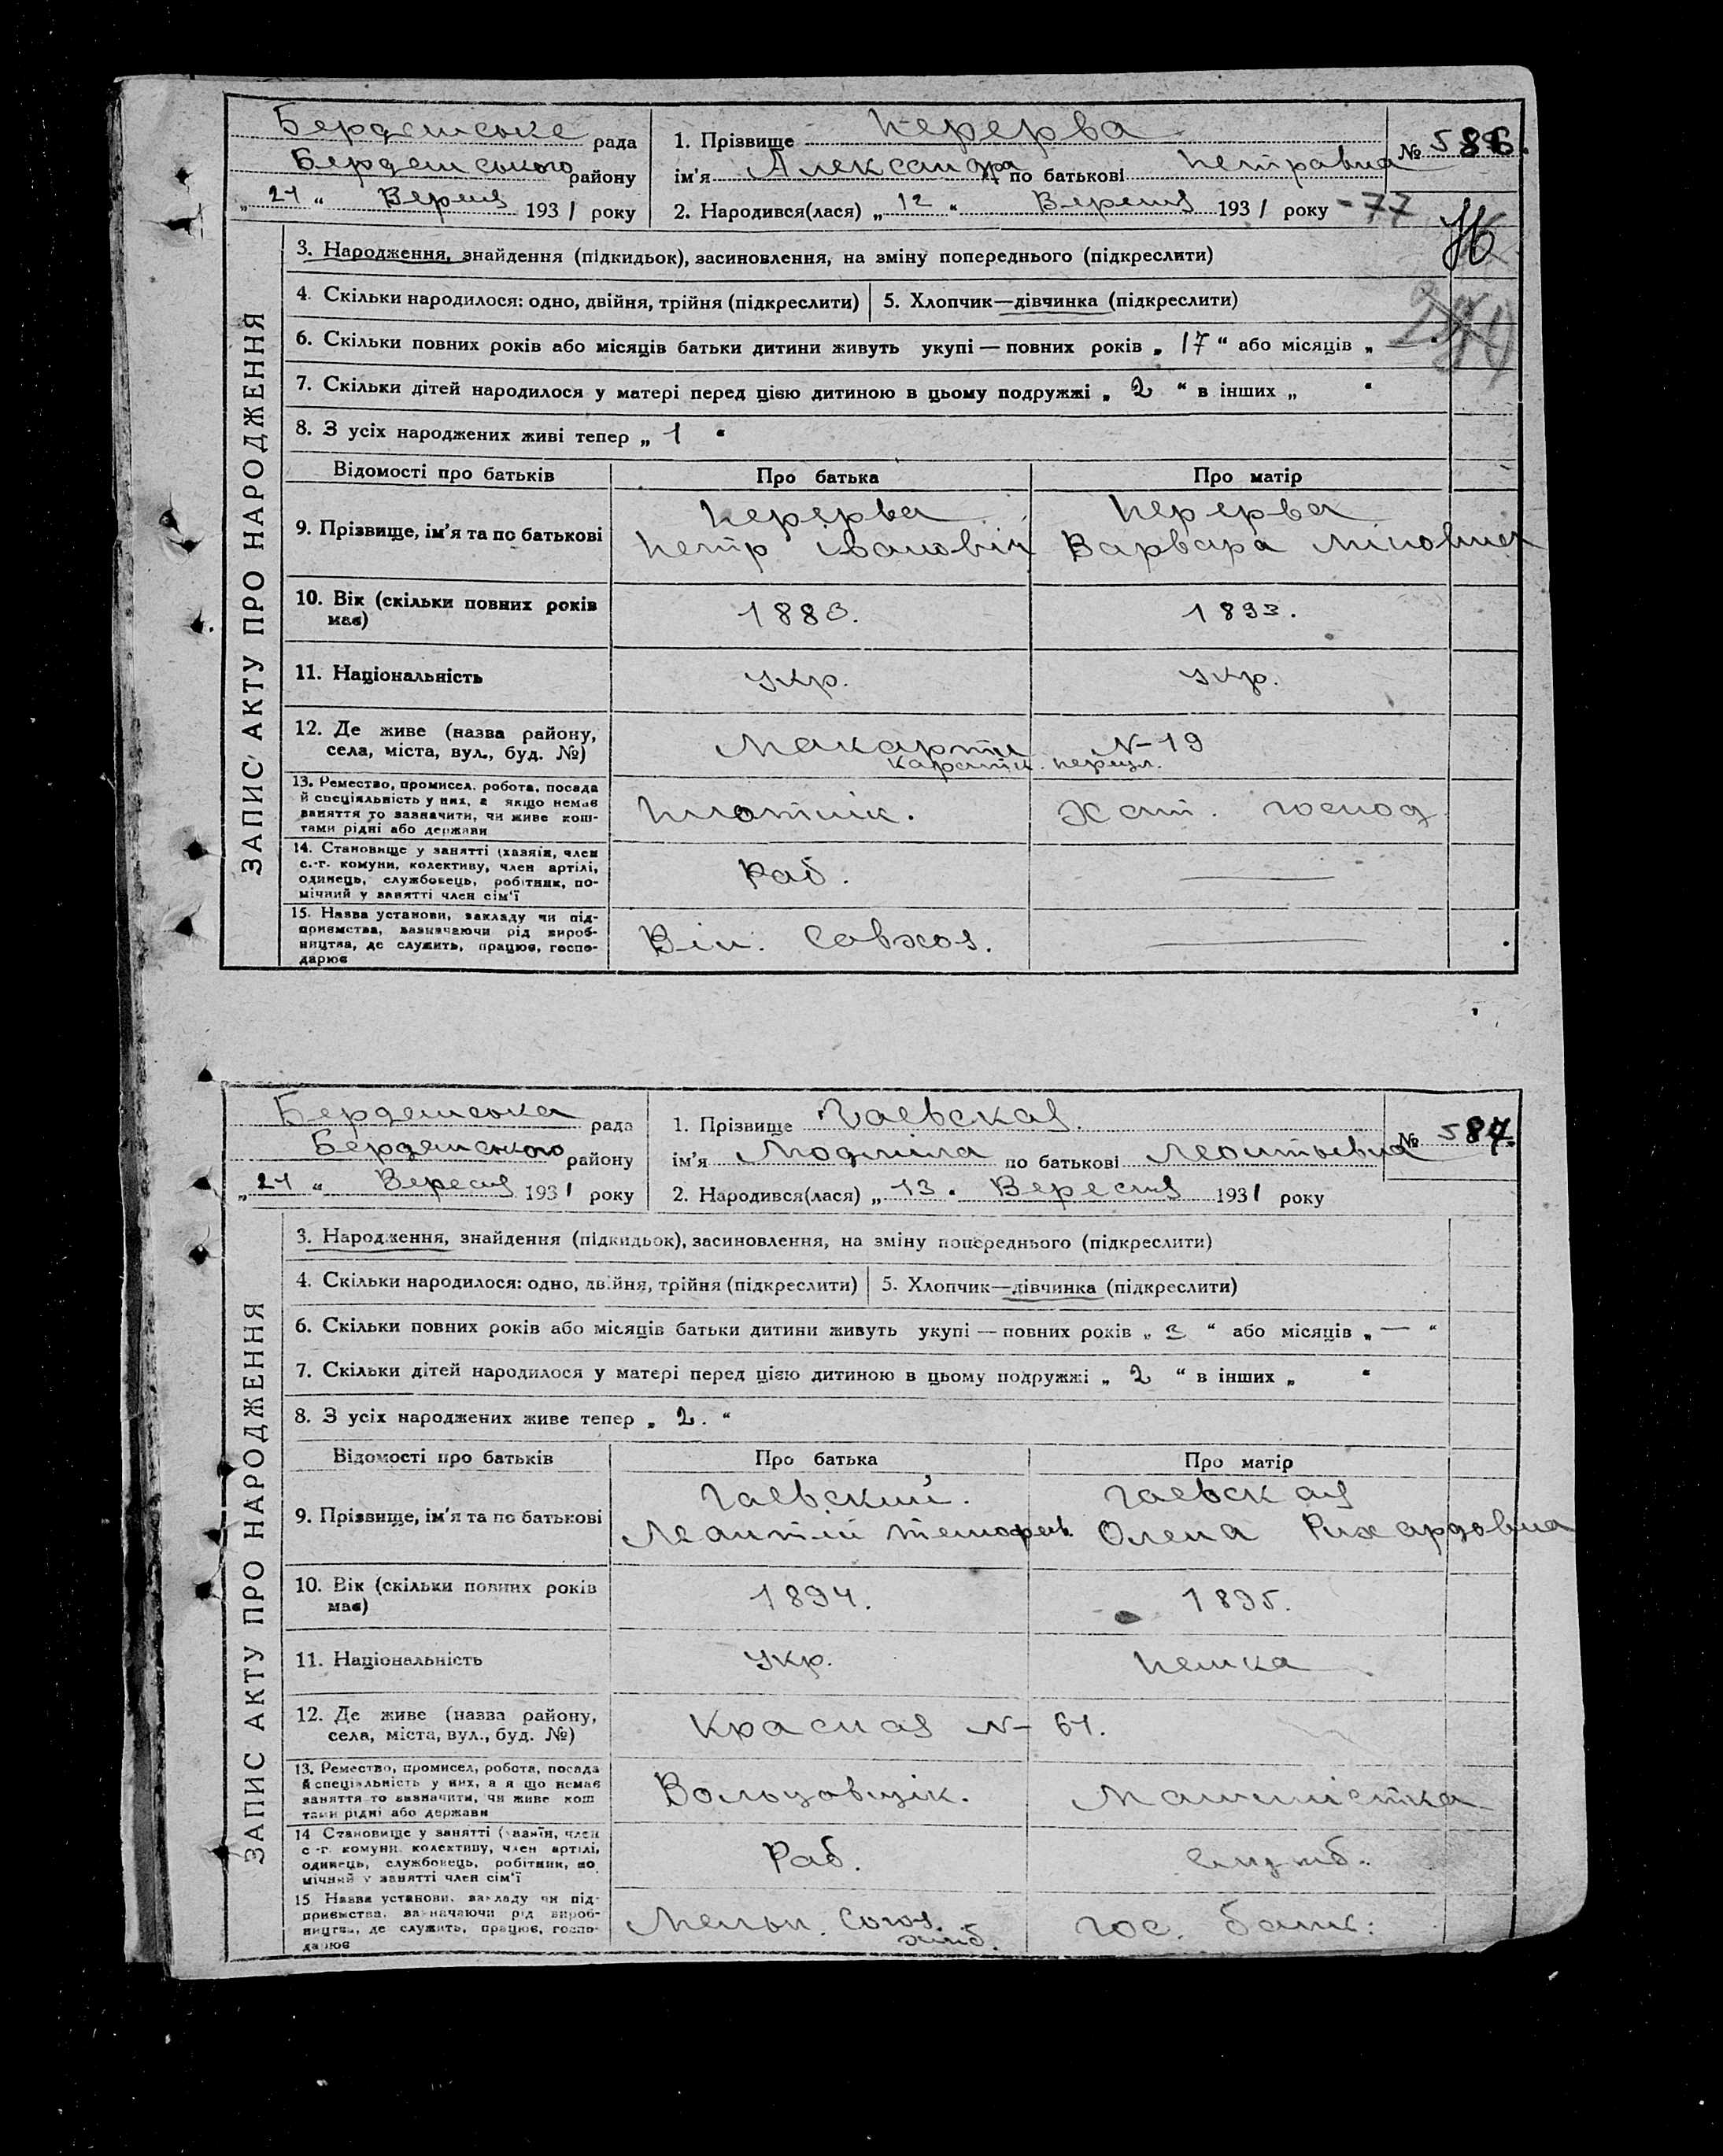 Бердянське рада
Бердянського району
„ 21 “ Вересня 1931 року
1. Прізвище Перерва
№ 586.
ім'я Александра по батькові Петравна
2. Народився(лася) „ 12 “ Вересня 1931 року - 77
ЗАПИС АКТУ ПРО НАРОДЖЕННЯ
3. Народження, знайдення (підкидьок), засиновлення, на зміну попереднього (підкреслити)
4. Скільки народилося: одно, двійня, трійня (підкреслити) 5. Хлопчик—дівчинка (підкреслити)
6. Скільки повних років або місяців батьки дитини живуть укупі — повних років „ 17 “ або місяців „ —
7. Скільки дітей народилося у матері перед цією дитиною в цьому подружжі „ 2 “ в інших „ “
8. З усіх народжених живі тепер „ 1 “
Відомості про батьків Про батька Про матір
9. Прізвище, ім'я та по батькові
Перерва Перерва
Петр Івановіч Варвара
10. Вік (скільки повних років має) 1883. 1893.
11. Національність укр. укр.
12. Де живе (назва району, села, міста, вул., буд. №)
N-19
13. Ремество, промисел, робота, посада й спеціяльність у них, а якщо немає заняття то зазначити, чи живе коштами рідні або держави
Плотнік. Хат. господ.
14. Становище у занятті (хазяїн, член с.-г. комуни, колективу, член артілі, одинець, службовець, робітник, помічний у занятті член сім'ї
Раб. —
15. Назва установи, закладу чи підприємства, зазначаючи рід виробництва, де служить, працює, господарює
Він. Совхоз. —
Бердянська рада
Бердянського району
„ 21 “ Вересня 1931 року
1. Прізвище Гаевская.
№ 587.
ім'я Людміла по батькові Леонтьевна
2. Народився(лася) „ 13 “ Вересня 1931 року
ЗАПИС АКТУ ПРО НАРОДЖЕННЯ
3. Народження, знайдення (підкидьок), засиновлення, на зміну попереднього (підкреслити)
4. Скільки народилося: одно, двійня, трійня (підкреслити) 5. Хлопчик—дівчинка (підкреслити)
6. Скільки повних років або місяців батьки дитини живуть укупі — повних років „ 3 “ або місяців „ — “
7. Скільки дітей народилося у матері перед цією дитиною в цьому подружжі „ 2 “ в інших „ “
8. З усіх народжених живе тепер „ 2. “
Відомості про батьків Про батька Про матір
9. Прізвище, ім'я та по батькові
Гаевский. Гаевская
Леантій Олена Рихардовна
10. Вік (скільки повних років має) 1894. 1895.
11. Національність укр. Немка
12. Де живе (назва району, села, міста, вул., буд. №)
Красная N- 61.
13. Ремество, промисел, робота, посада й спеціяльність у них, а якщо немає заняття то зазначити, чи живе коштами рідні або держави
Вольцовщік. Машинистка
14 Становище у занятті (хазяїн, член с.-г. комуни, колективу, член артілі, одинець, службовець, робітник, помічний у занятті член сім'ї
Раб. Служб.
15. Назва установи, закладу чи підприємства, зазначаючи рід виробництва, де служить, працює, господарює
Мельн. Союз. хліб. Гос. банк.